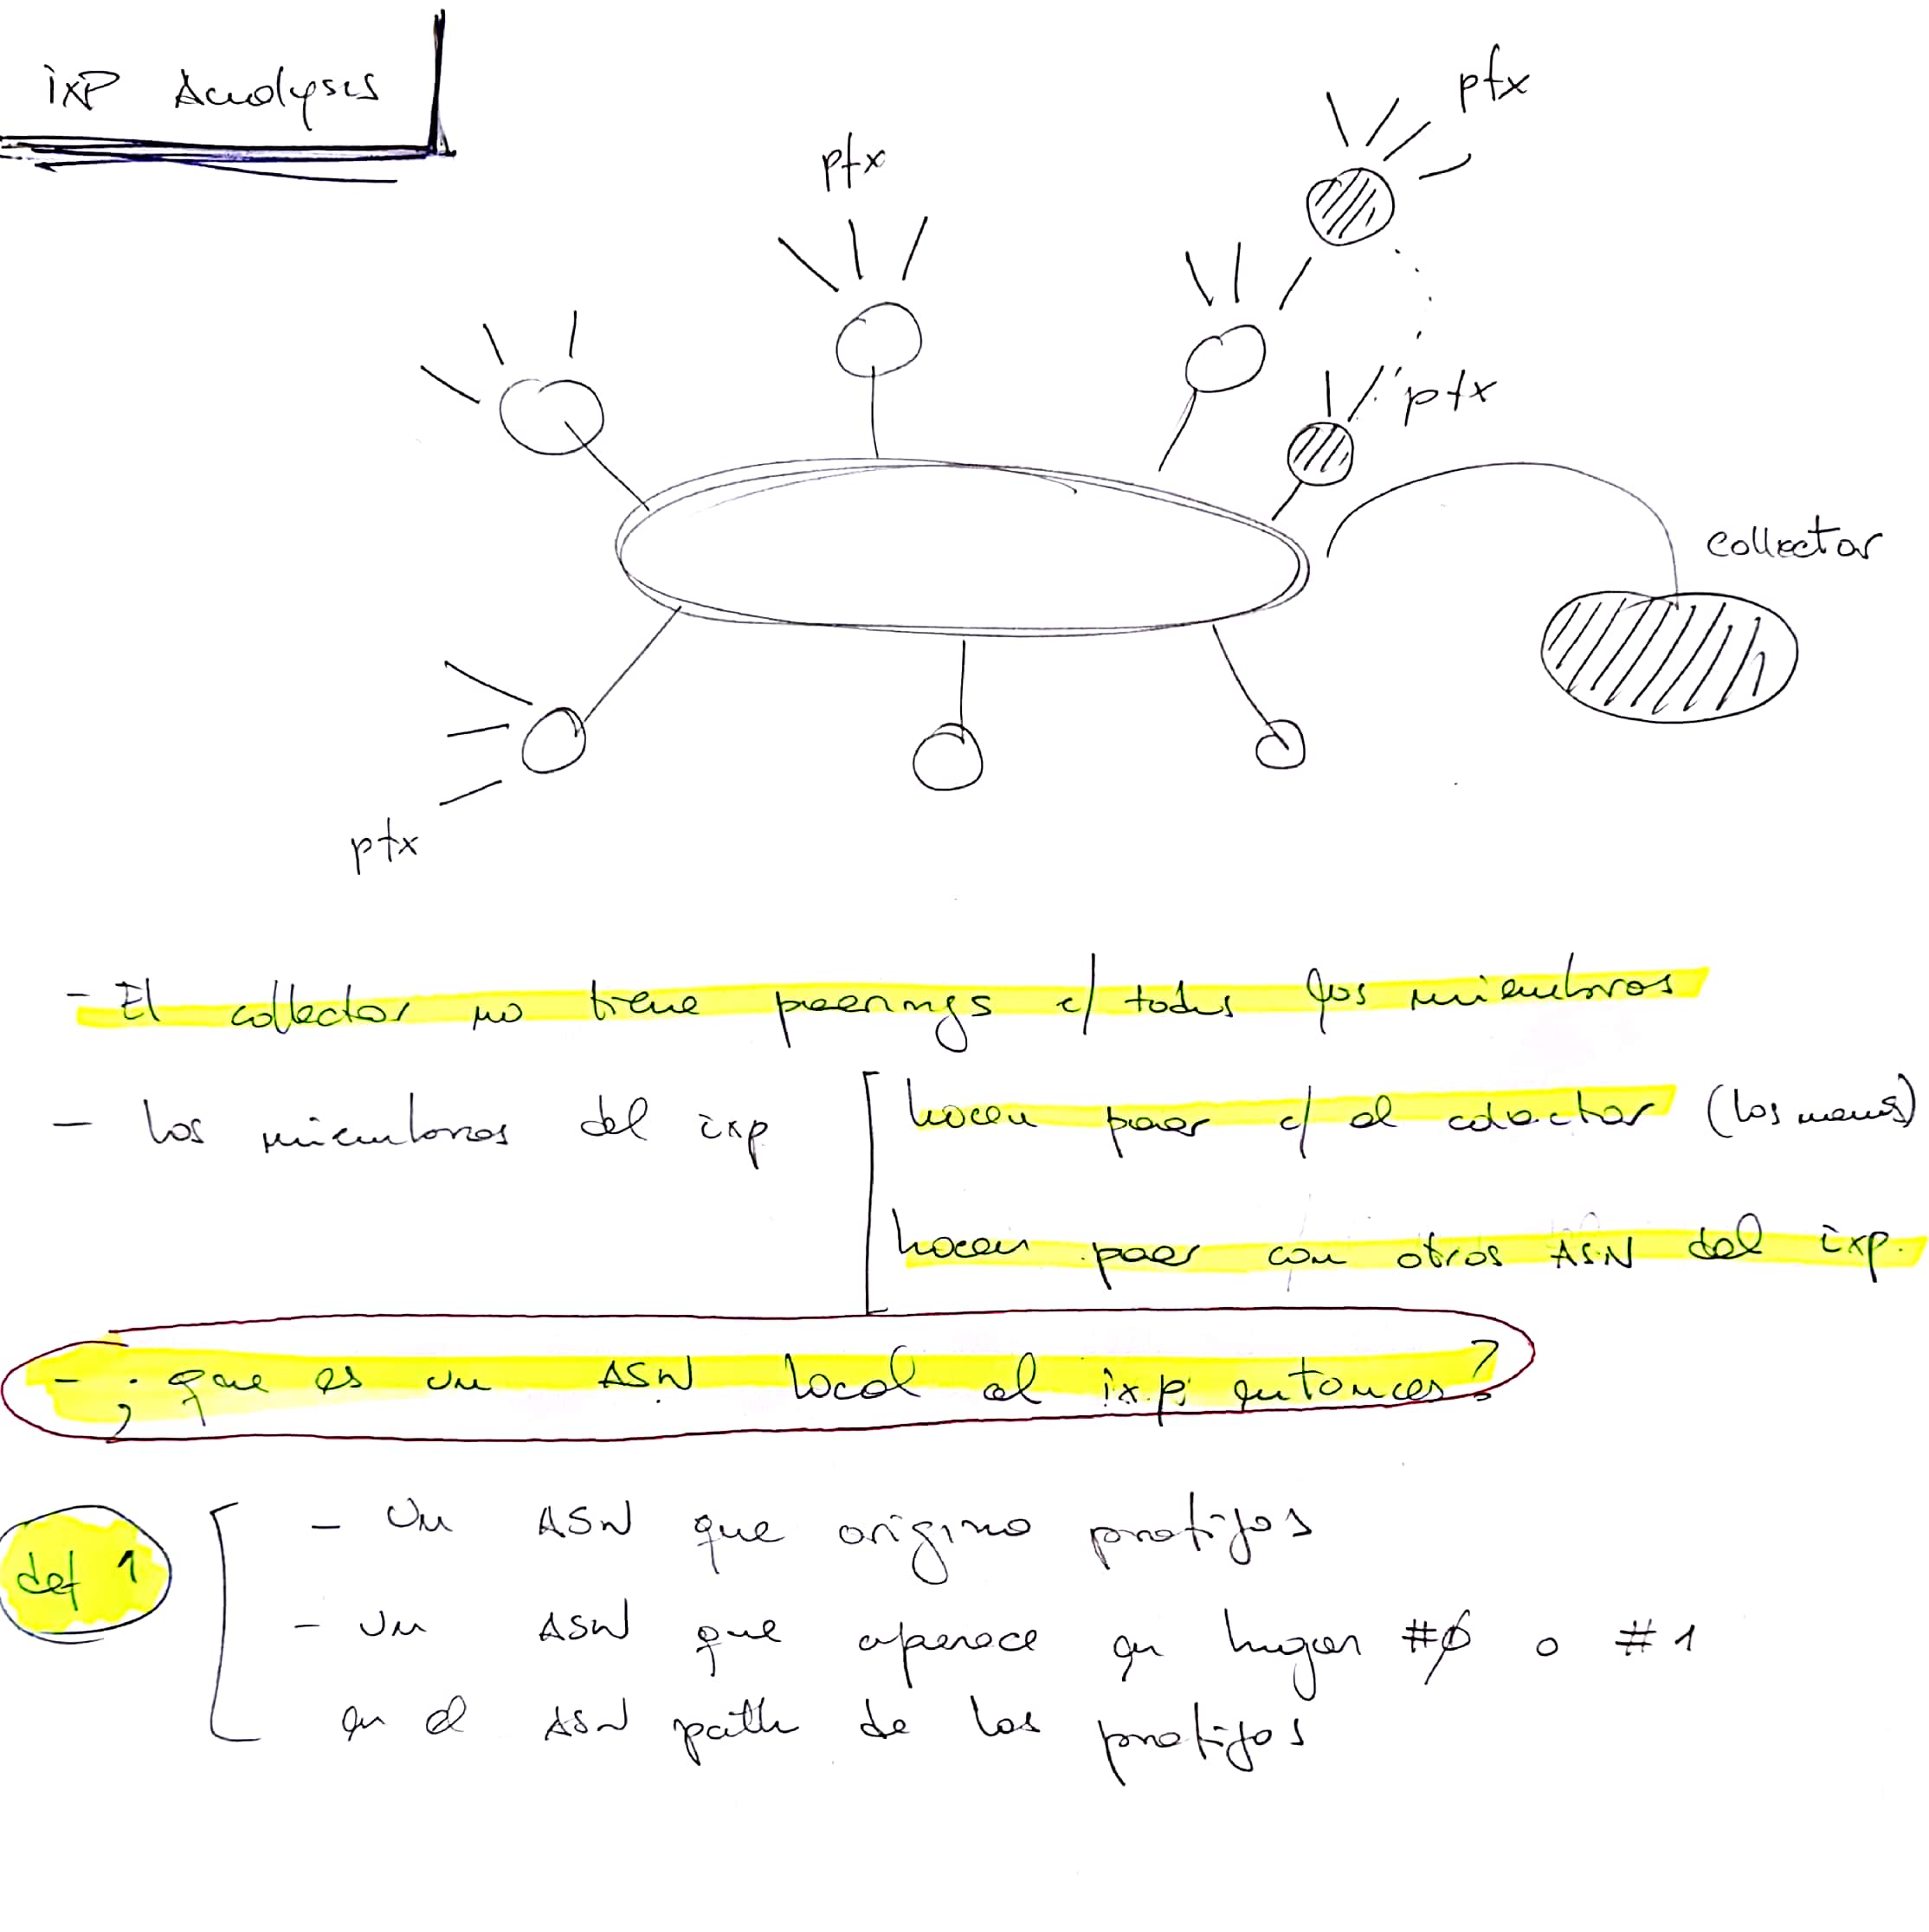 ixP Analysis
pfx
pfx
pfx
collector
pfx
- El collector no tiene peerings c/ todos los miembros
- Los miembros del ixp
hacen peer c/ el colector (los menos)
hacen peer con otros ASN del ixp.
- ¿que es un ASN local al ixp entonces?
def 1
- Un ASN que origina prefijos
- Un ASN que aparece en lugar #0 o #1
en el ASN path de los prefijos